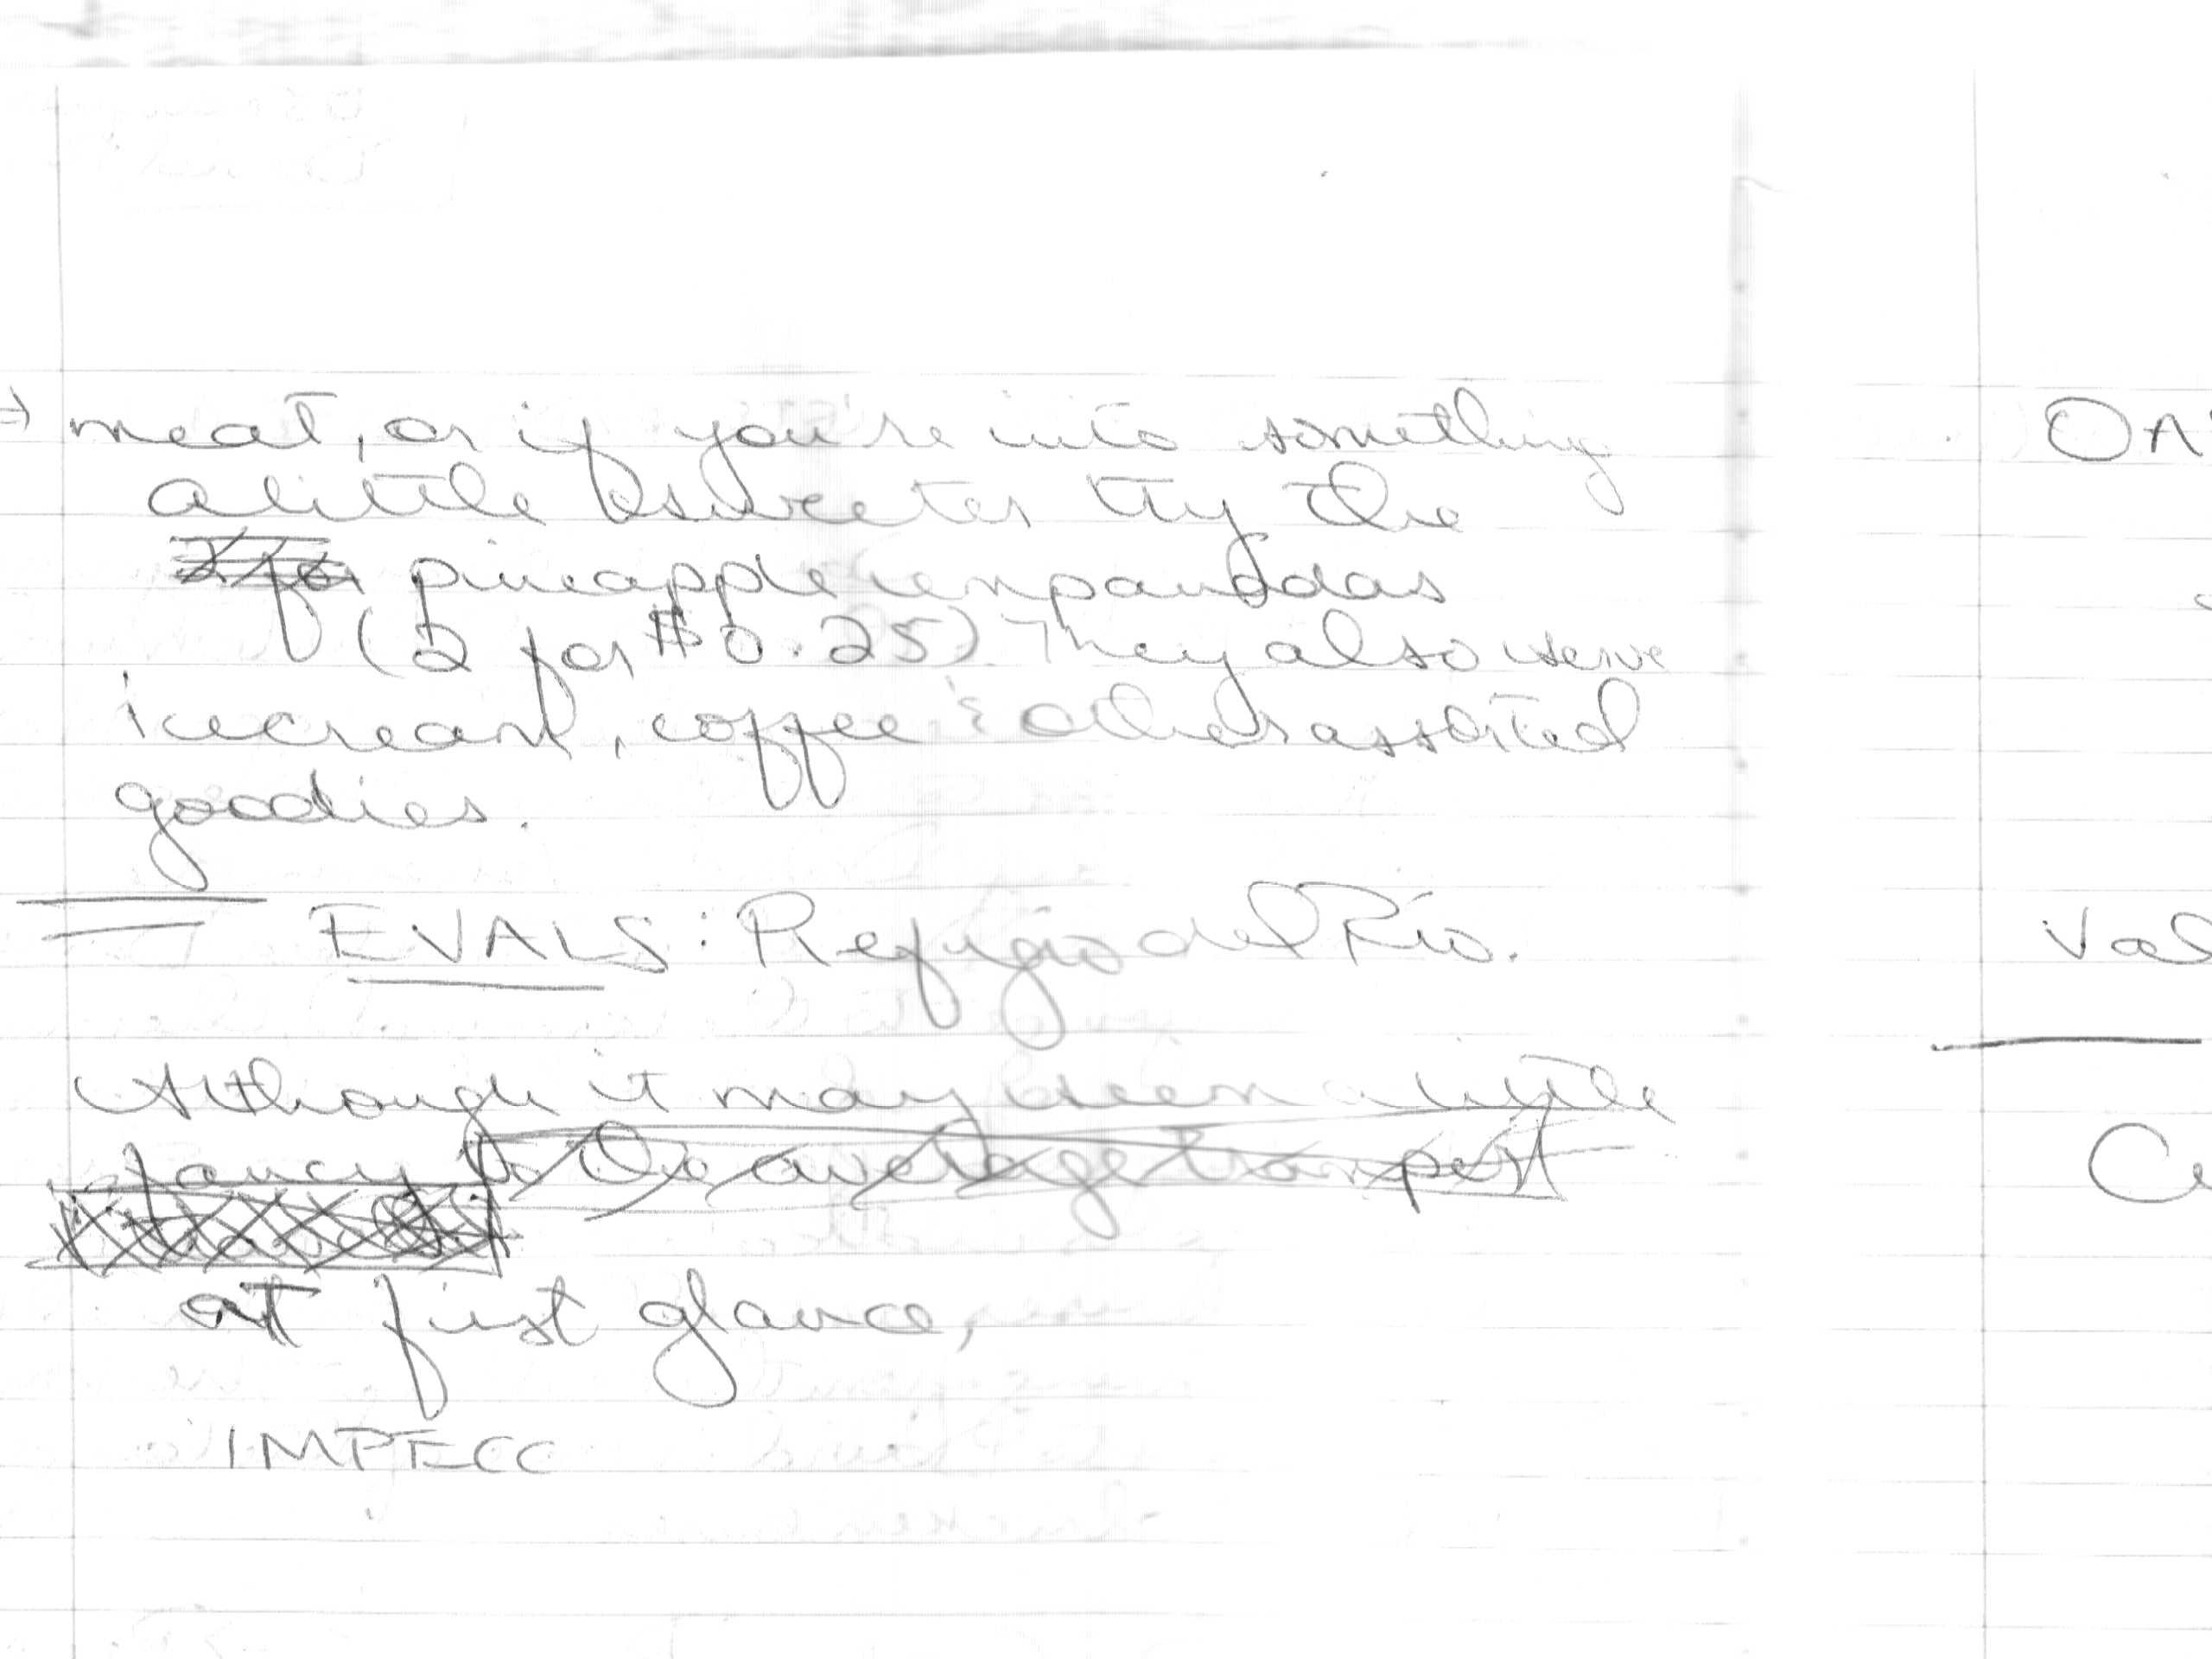 meat, or if you're into something
a little sweeter try the
2 for pineapple empanadas
(2 for $0.25) They also serve
icecream, coffee & other assorted
goodies.
EVALS: Refugio del Río.
Although it may seem a little
fancy to the average transport
at first glance,
IMPECC